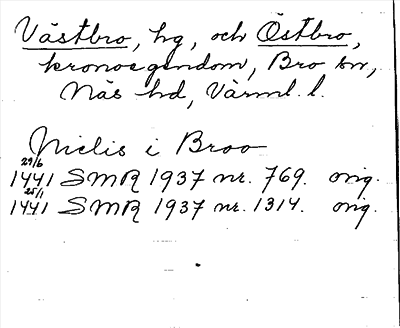 Västbro, hg, och Östbro,
kronoegendom, Bro sn,
Näs hd, Värml. l.
Nielis i Broo
29/6
1441 SMR 1937 nr. 769. orig.
25/1
1441 SMR 1937 nr. 1314. orig.